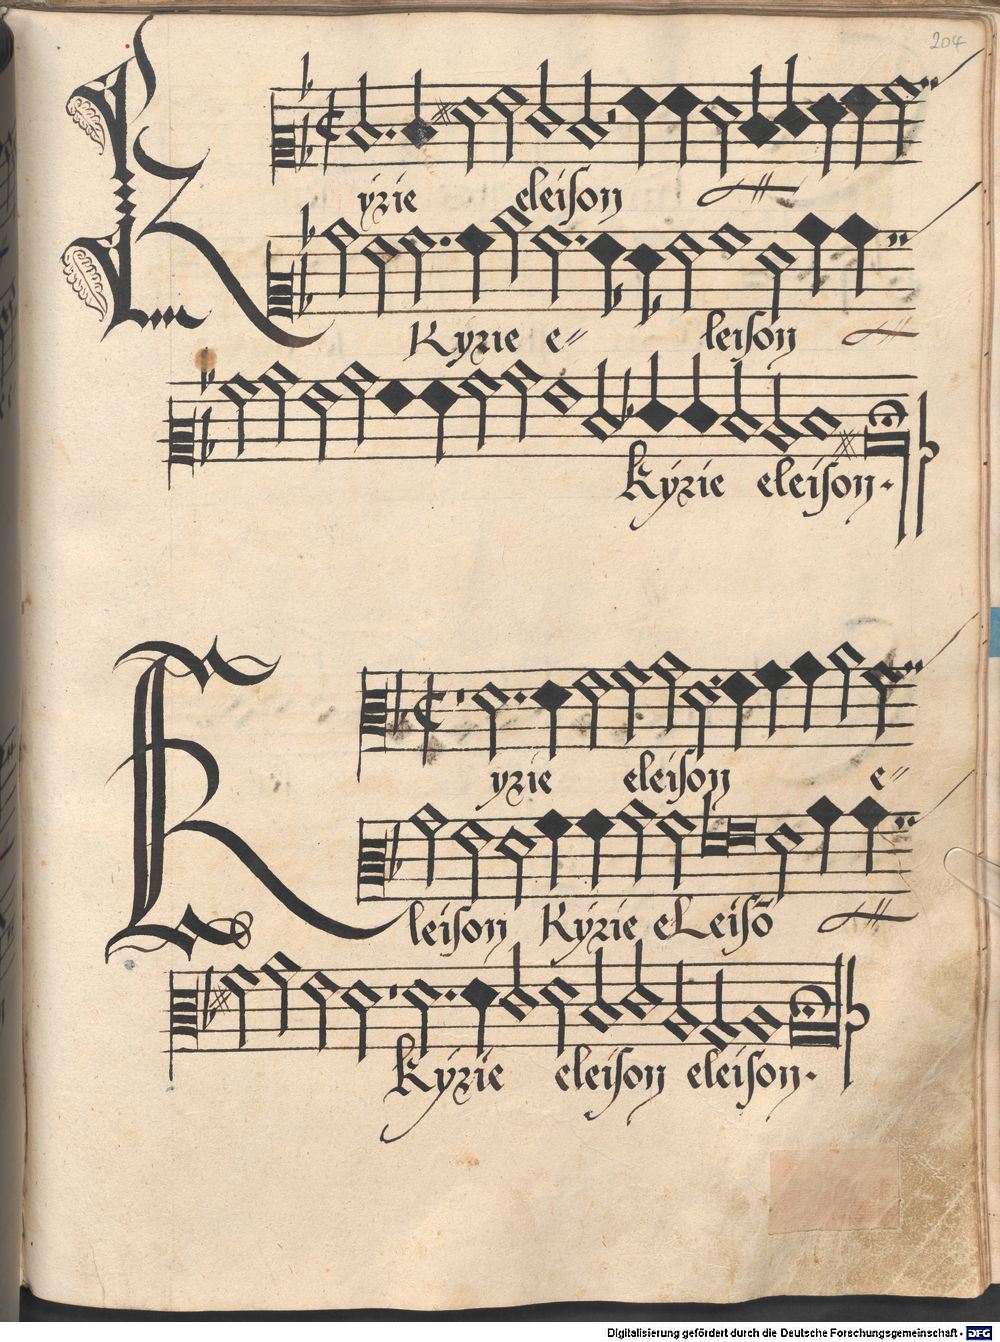 204
Kyrie eleison
Kyrie e= leison
Kyrie eleison.
Kyrie eleison e=
leison Kyrie eLeisõ
Kyrie eleison eleison.
Digitalisierung gefördert durch die Deutsche Forschungsgemeinschaft - DFG